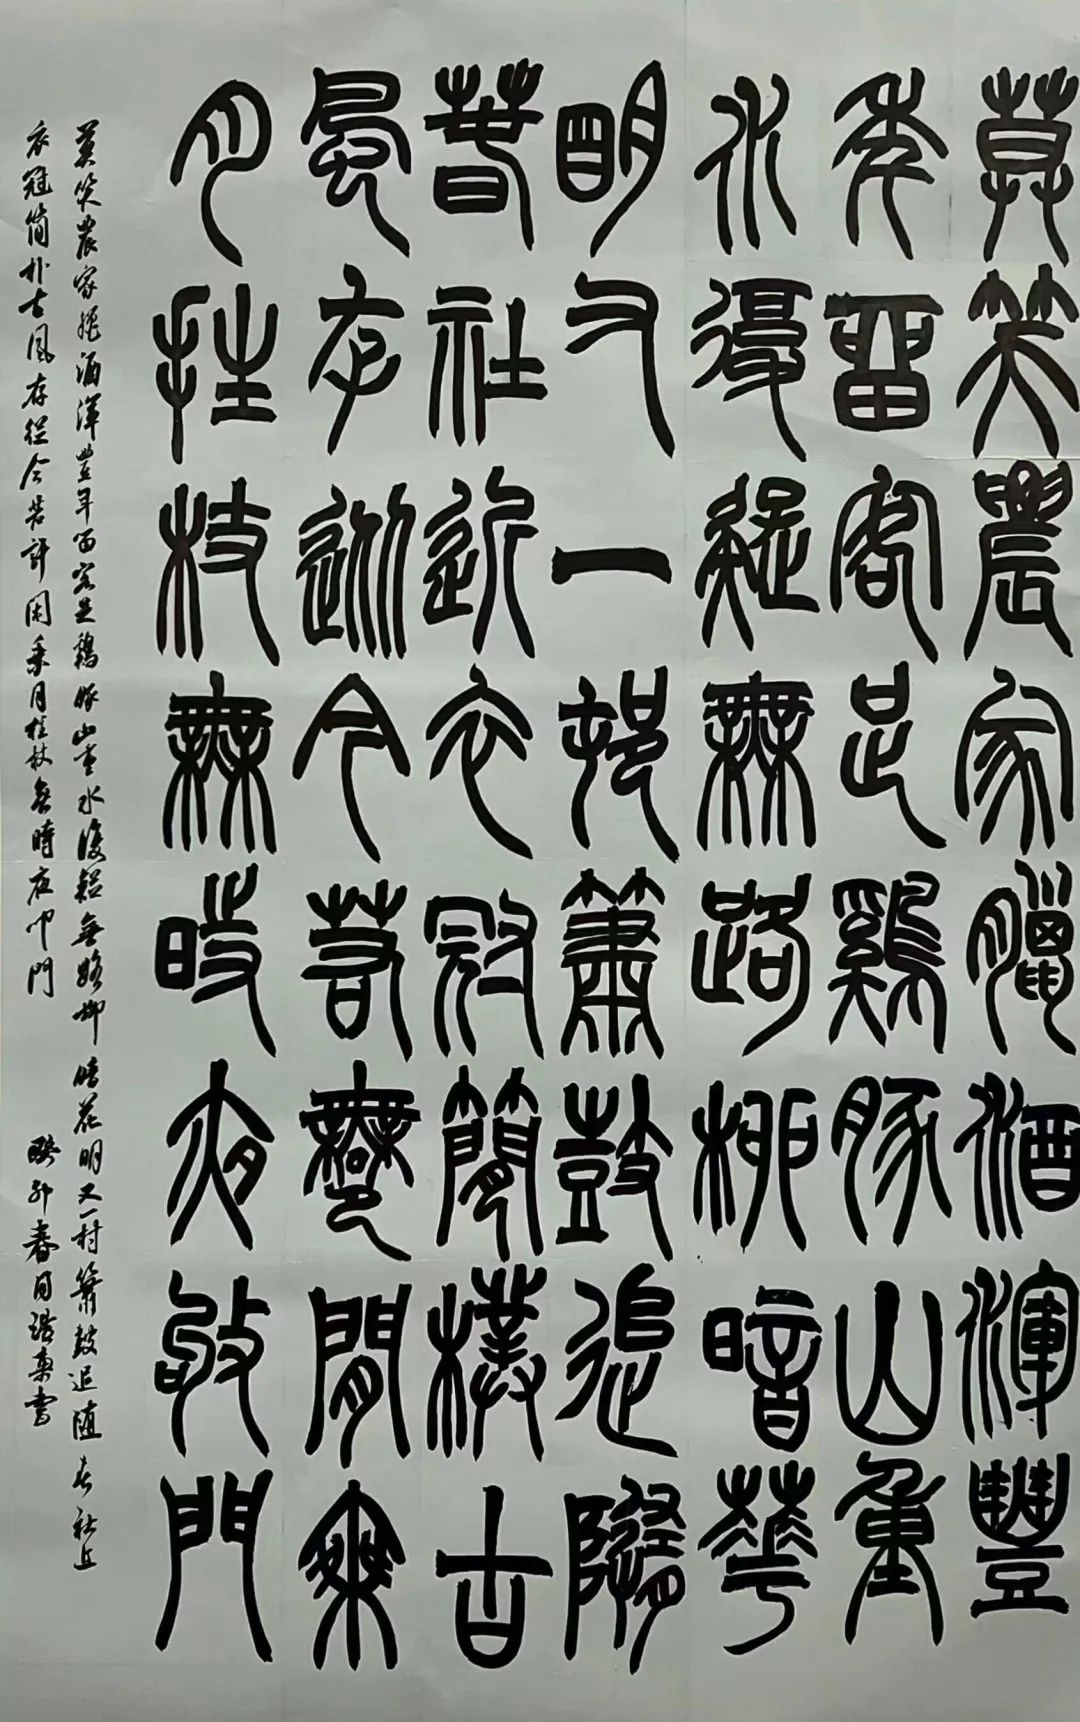 莫笑農家臘酒渾豐
年留客足雞豚山重
水復疑無路柳暗華
明又一邨簫鼓追隨
春社近衣冠簡樸古
風存從今若鄦閒乘
月拄杖無時夜敂門
莫笑農家臘酒渾豐年留客足鷄豚山重水復疑無路柳暗花明又一村簫鼓追隨春社近
衣冠簡朴古風存從今若許閑乘月拄杖無時夜叩門 癸卯春月浩書